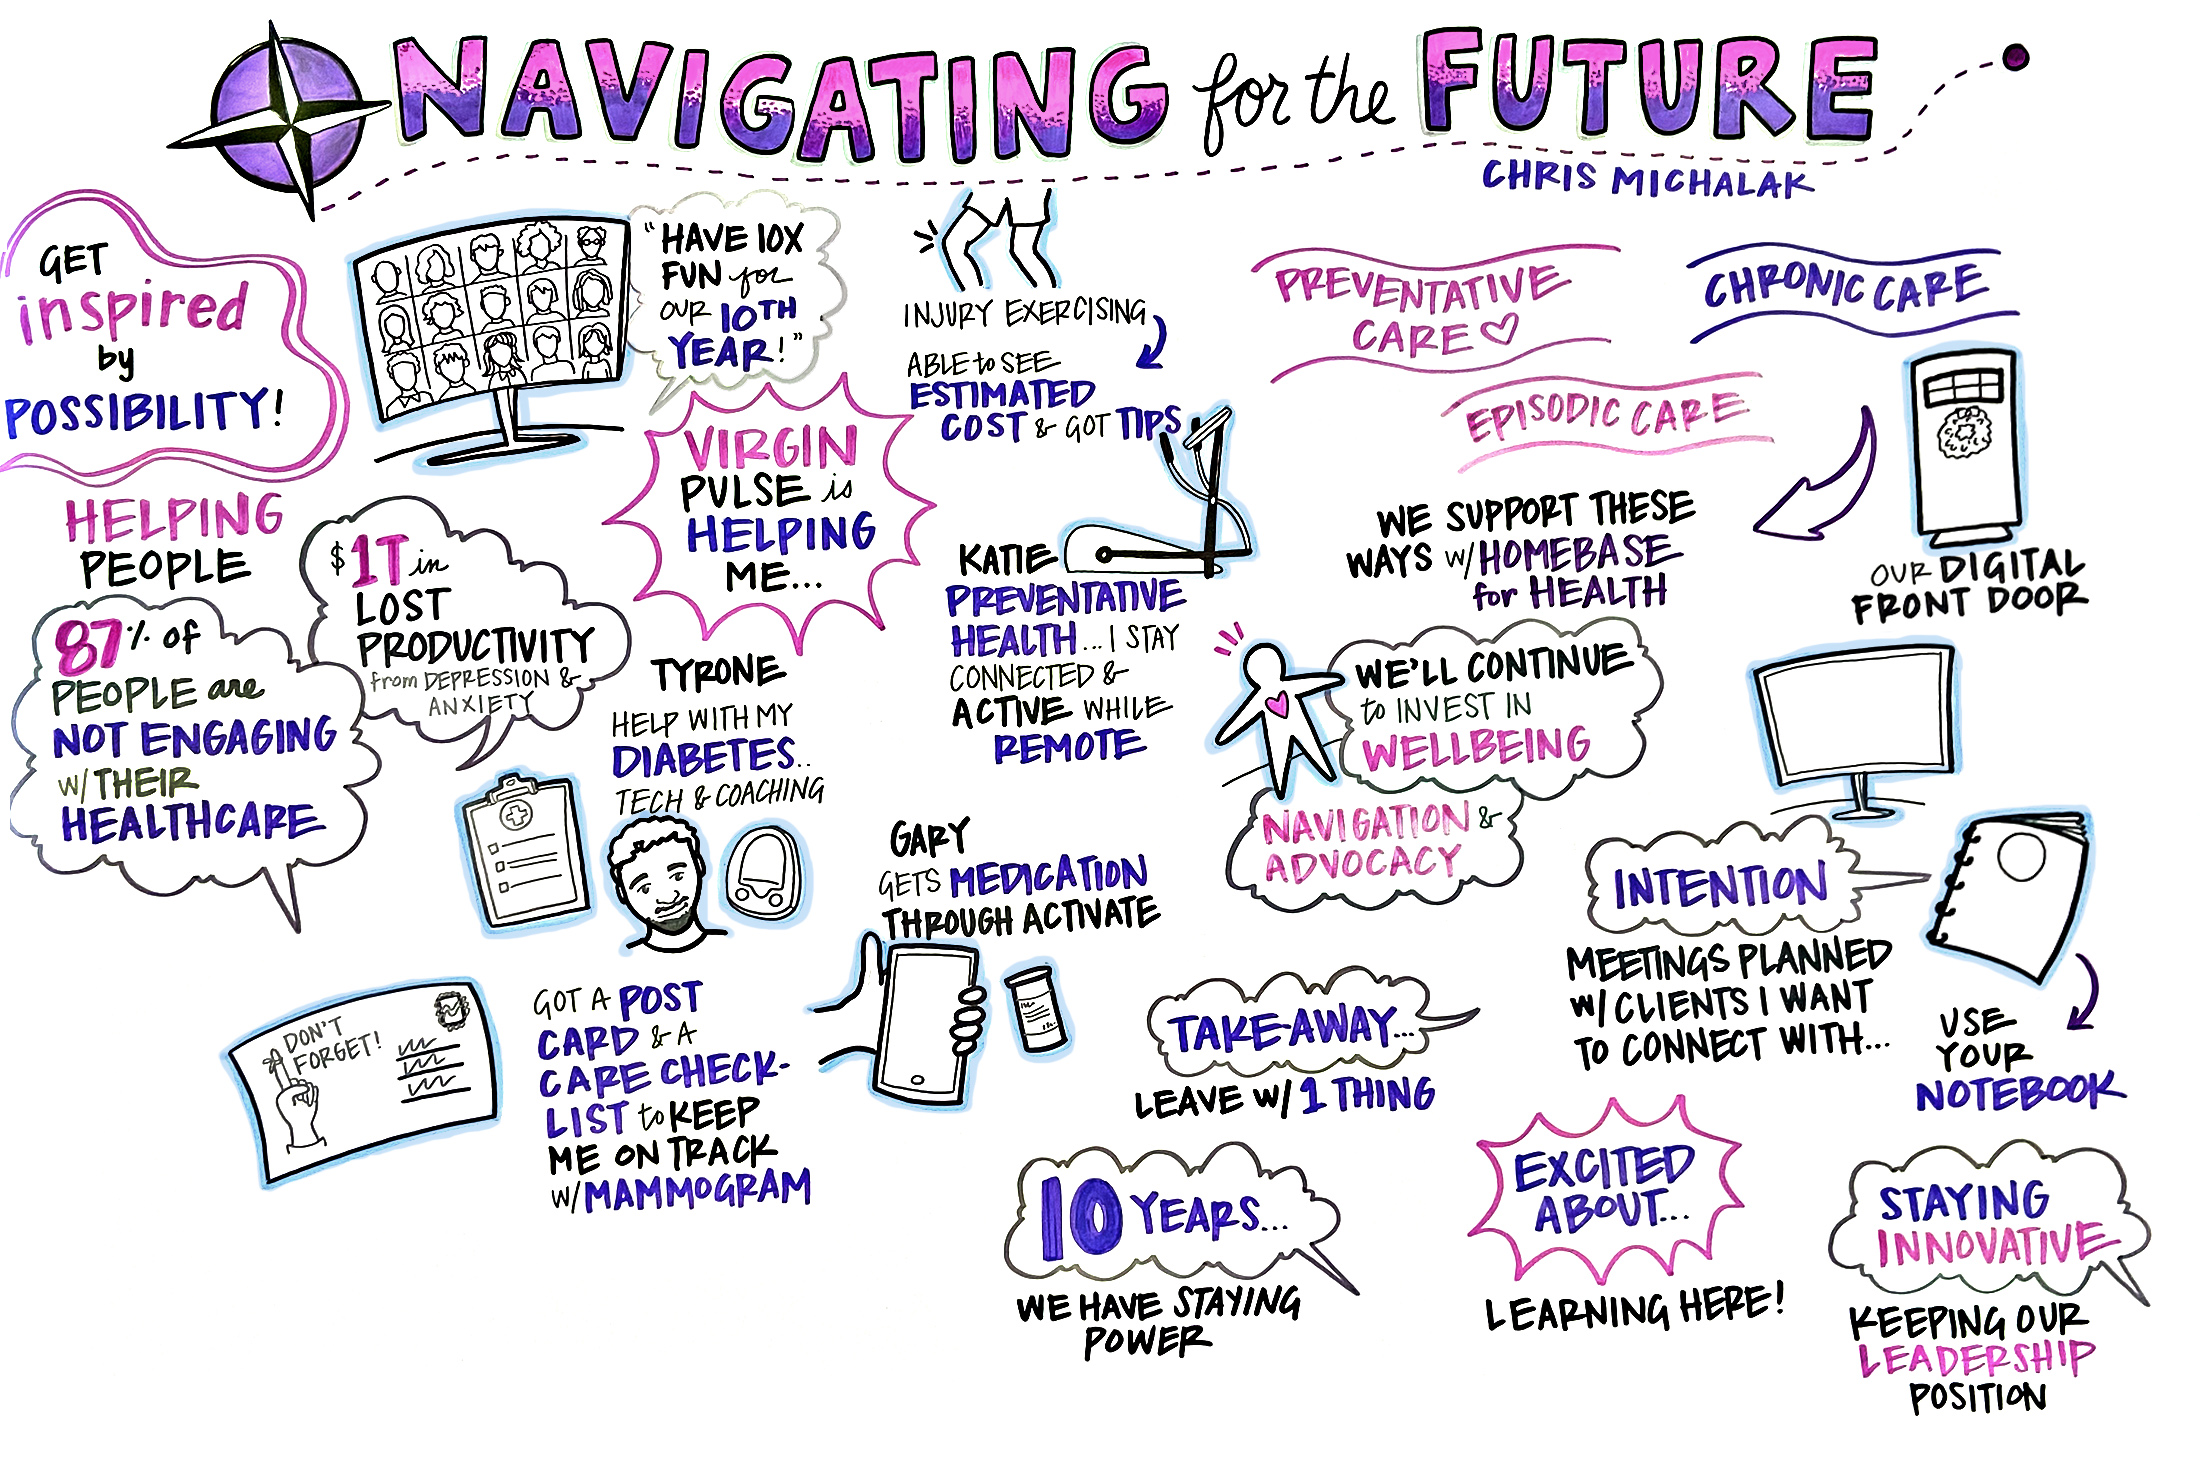 NAVIGATING for the FUTURE
CHRIS MICHALAK
GET
inspired
by
POSSIBILITY!
"HAVE 10X
FUN for
OUR 10TH
YEAR!"
HELPING
PEOPLE
87% of
PEOPLE are
NOT ENGAGING
W/ THEIR
HEALTHCARE
$1T in
LOST
PRODUCTIVITY
from DEPRESSION &
ANXIETY
VIRGIN
PULSE is
HELPING
ME...
TYRONE
HELP WITH MY
DIABETES..
TECH & COACHING
DON'T
FORGET!
GOT A POST
CARD & A
CARE CHECK-
LIST to KEEP
ME ON TRACK
W/ MAMMOGRAM
INJURY EXERCISING
ABLE to SEE
ESTIMATED
COST & GOT TIPS
KATIE
PREVENTATIVE
HEALTH... I STAY
CONNECTED &
ACTIVE WHILE
REMOTE
GARY
GETS MEDICATION
THROUGH ACTIVATE
PREVENTATIVE
CARE
CHRONIC CARE
EPISODIC CARE
WE SUPPORT THESE
WAYS W/ HOMEBASE
for HEALTH
OUR DIGITAL
FRONT DOOR
WE'LL CONTINUE
to INVEST IN
WELLBEING
NAVIGATION &
ADVOCACY
INTENTION
MEETINGS PLANNED
W/ CLIENTS I WANT
TO CONNECT WITH...
USE
YOUR
NOTEBOOK
TAKE-AWAY...
LEAVE W/ 1 THING
10 YEARS...
WE HAVE STAYING
POWER
EXCITED
ABOUT...
LEARNING HERE!
STAYING
INNOVATIVE
KEEPING OUR
LEADERSHIP
POSITION